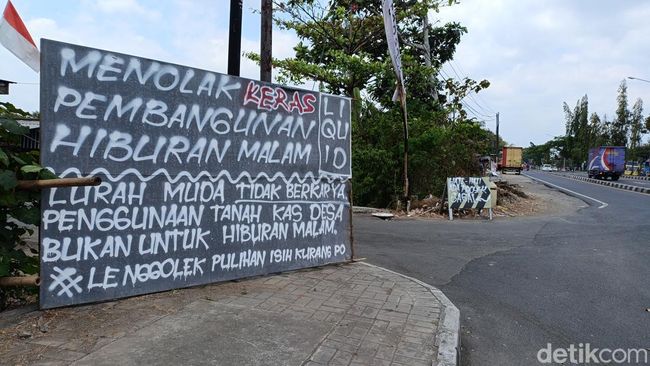 MENOLAK KERAS
PEMBANGUNAN
HIBURAN MALAM
LI
QU
ID
LURAH MUDA TIDAK BERKARYA
PENGGUNAAN TANAH KAS DESA
BUKAN UNTUK HIBURAN MALAM.
LENGGOLEK PULIHAN ISIH KURANG PO
detikcom